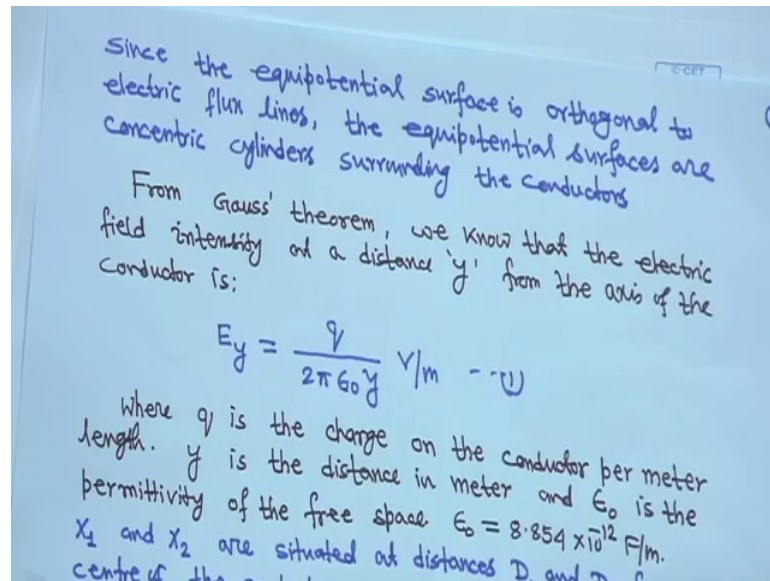 © CET
Since the equipotential surface is orthogonal to
electric flux lines, the equipotential surfaces are
concentric cylinders surrounding the conductors
From Gauss' theorem, we know that the electric
field intensity at a distance 'y' from the axis of the
conductor is:
Ey = q / 2π ϵ0 y V/m --- (1)
Where q is the charge on the conductor per meter
length. y is the distance in meter and ϵ0 is the
permittivity of the free space ϵ0 = 8.854 x 10^-12 F/m.
X1 and X2 are situated at distances D1 and
centre of the